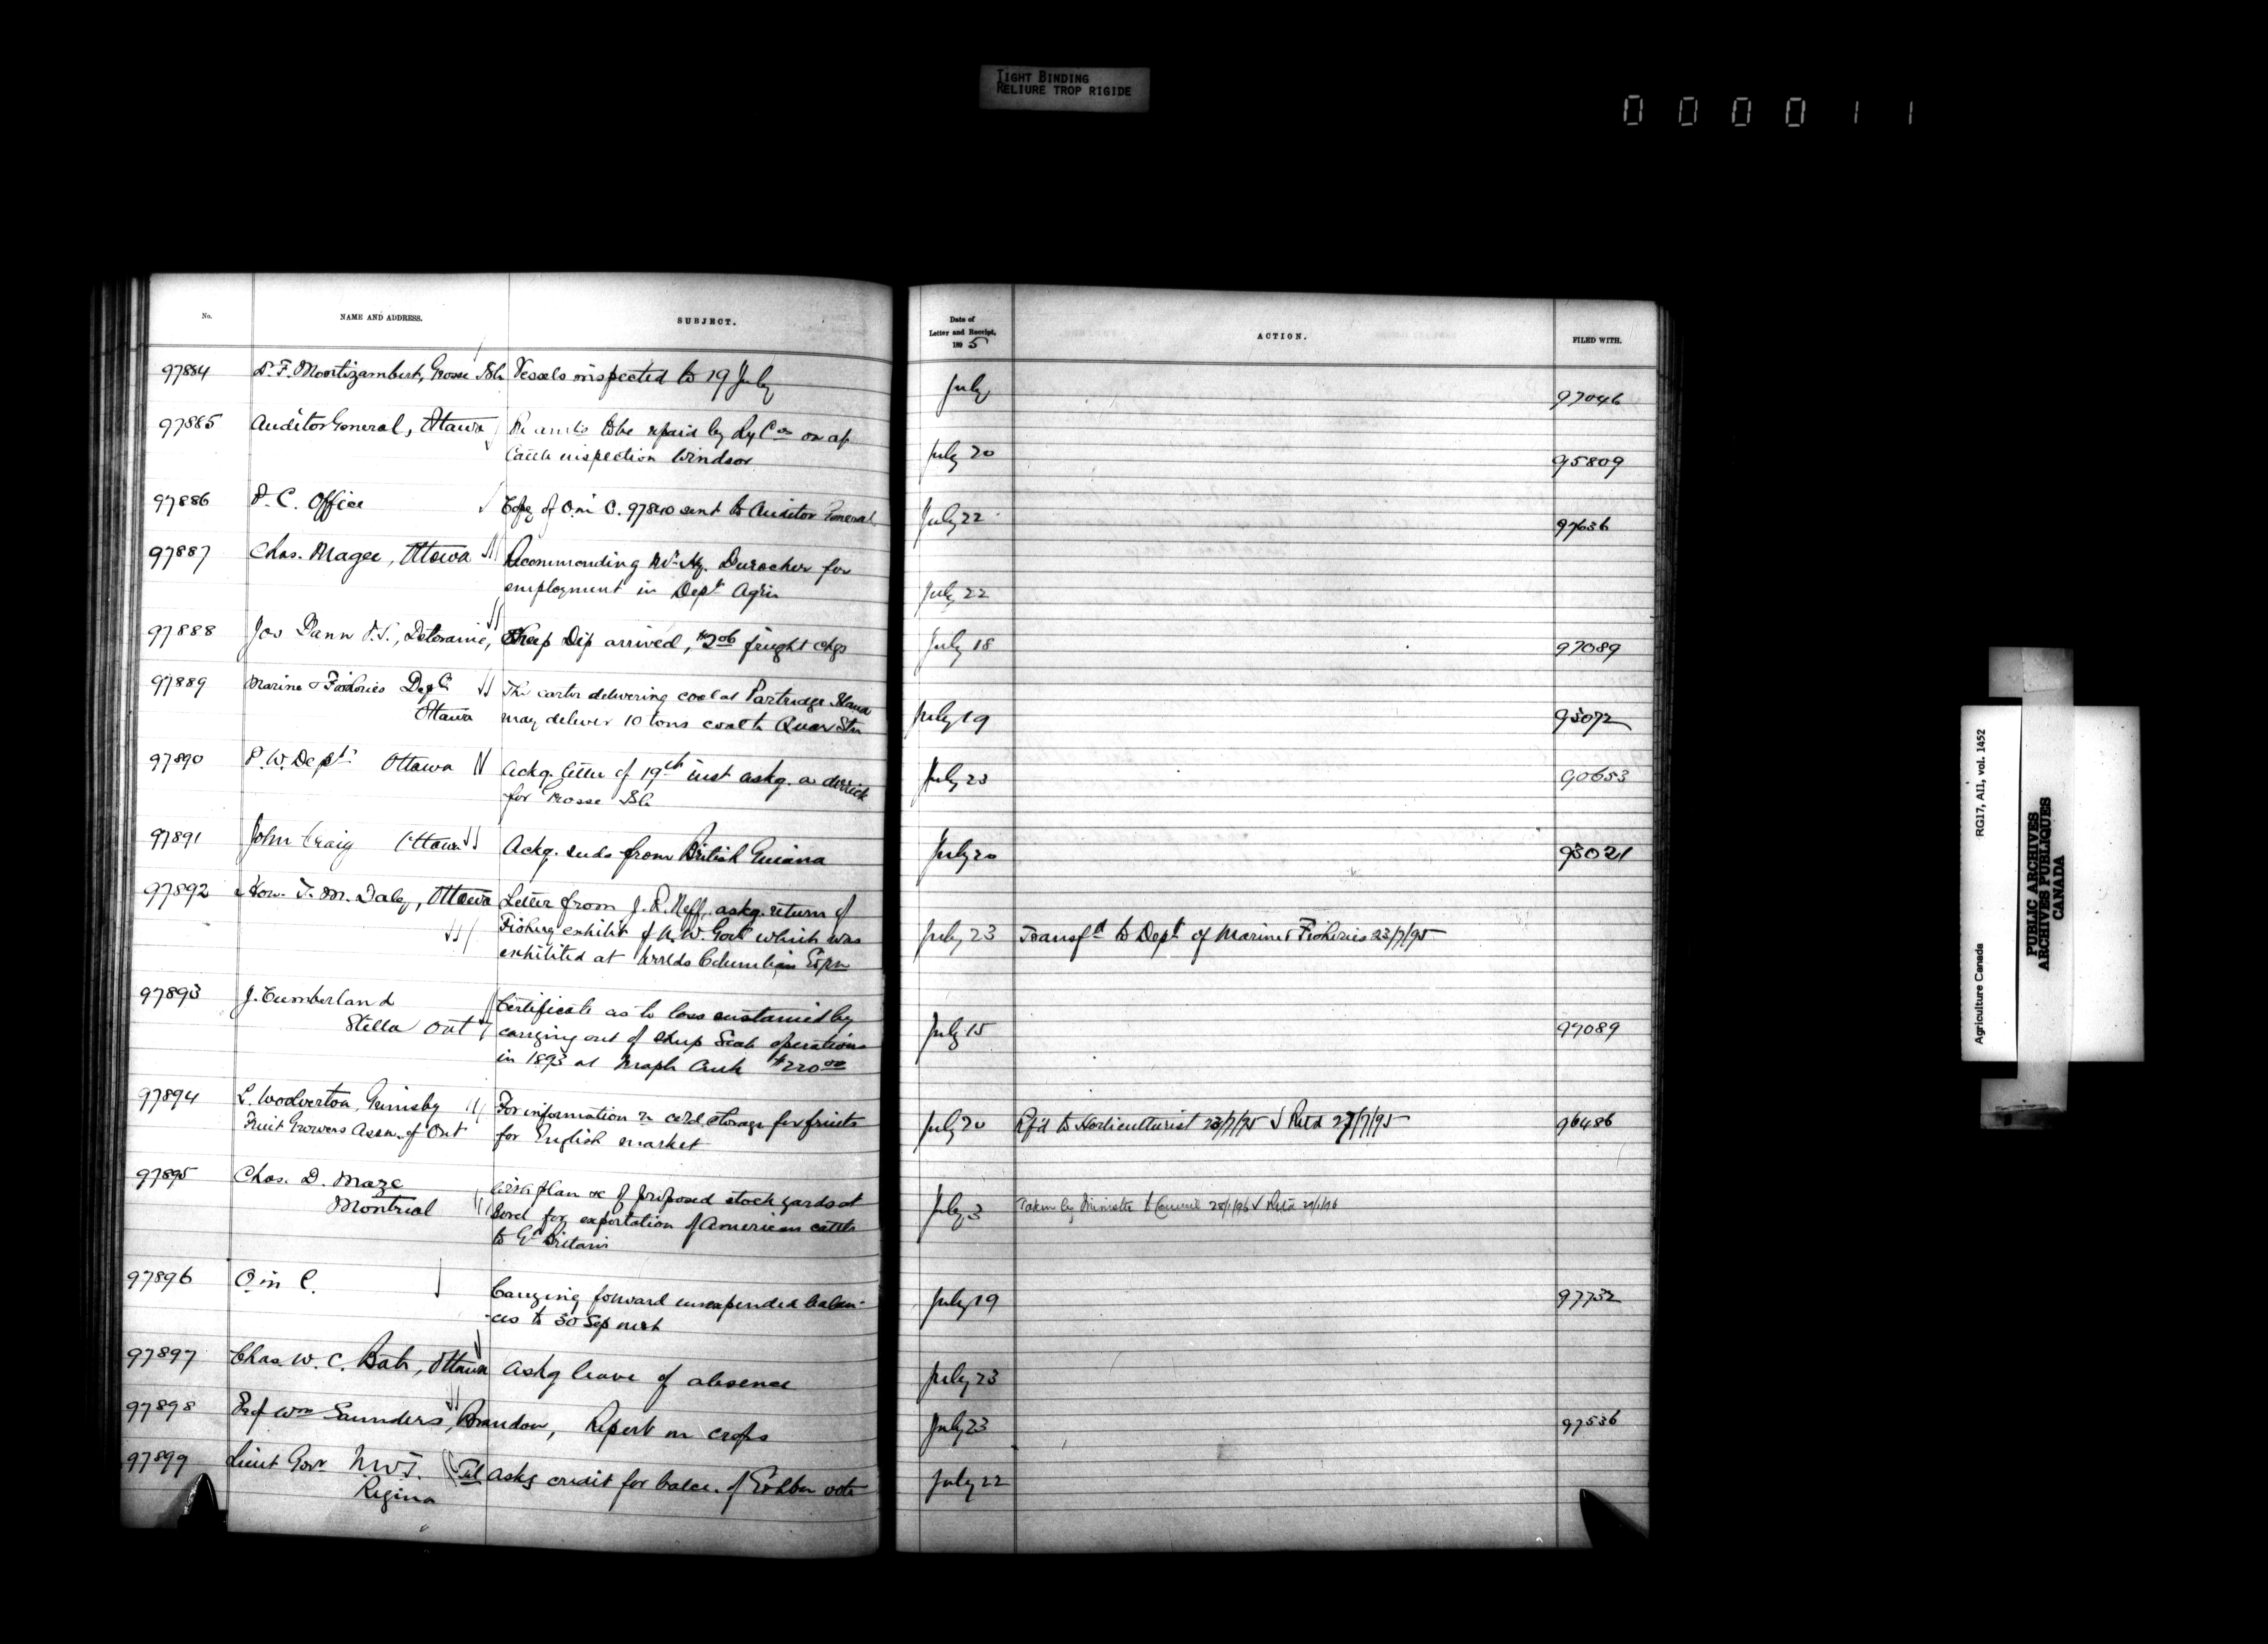 TIGHT BINDING
RELIURE TROP RIGIDE
0 0 0 0 1 1
No. NAME AND ADDRESS. SUBJECT. Date of Letter and Receipt, 1895 ACTION. FILED WITH.
97884 Dr. F. Montizambert, Grosse Isle Vessels inspected to 19 July July 97046
97885 Auditor General, Ottawa to be repaid by Ry Cos on a/c
Cattle inspection Windsor July 20 95809
97886 P. C. Office Copy of O in C. 97840 sent to Auditor General July 22 97636
97887 Chas. Magee, Ottawa Recommending Durocher for
employment in Dept Agric July 22
97888 Jos Dann P.S., Deloraine, Sheep Dip arrived, $2.06 freight chgs July 18 97089
97889 Marine & Fisheries Dept The carter delivering coal at Partridge Island
Ottawa may deliver 10 tons coal to Quar Stn July 19 95072
97890 P. W. Dept. Ottawa Ackg. letter of 19th inst askg. a derrick
for Grosse Isle July 23 90653
97891 John Craig Ottawa Ackg. seeds from British Guiana July 20 93021
97892 Hon. T. M. Daly, Ottawa Letter from J. R. Neff, askg. return of
Fishing exhibit of N. W. Govt which was July 23 Transfd to Dept of Marine & Fisheries 23/7/95
exhibited at Worlds Columbian Expn
97893 J. Cumberland Certificate as to loss sustained by
Stella Ont carrying out of Sheep Scab operations July 15 97089
in 1893 at Maple Creek $220.00
97894 L. Woolverton, Grimsby For information re cold storage for fruits
Fruit Growers Assn. of Ont for English market July 20 Rfd to Horticulturist 23/7/95 Retd 27/7/95 96486
97895 Chas. D. Maze
Montreal plan &c of proposed stock yards at
Sorel for exportation of American cattle July 3 Taken by Minister to Council 28/1/96 Retd 29/1/96
to Gt Britain
97896 O in C. Carrying forward unexpended balan-
-ces to 30 Sep next July 19 97732
97897 Chas. W. C. Bate, Ottawa Askg leave of absence July 23
97898 Prof Wm Saunders, Brandon, Report on crops July 23 97536
97899 Lieut Govr N.W.T. Tel Askg credit for balce. of Exhbn vote July 22
Regina
Agriculture Canada RG17, AI1, vol. 1452
PUBLIC ARCHIVES
ARCHIVES PUBLIQUES
CANADA